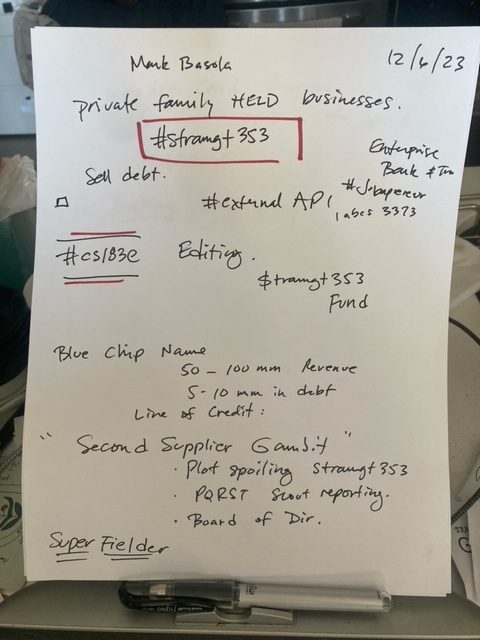 12/6/23
Mark Basola
private family HELD businesses.
#stramgt 353
Enterprise
Bank &
Sell debt.
#external API
labcs 3373
#cs183e Editing.
$tramgt353
Fund
Blue Chip Name
50 - 100 mm Revenue
5-10 mm in debt
Line of Credit:
"Second Supplier Gambit"
• Plot spoiling Stramgt353
• PQRST Scout reporting.
• Board of Dir.
Super Fielder